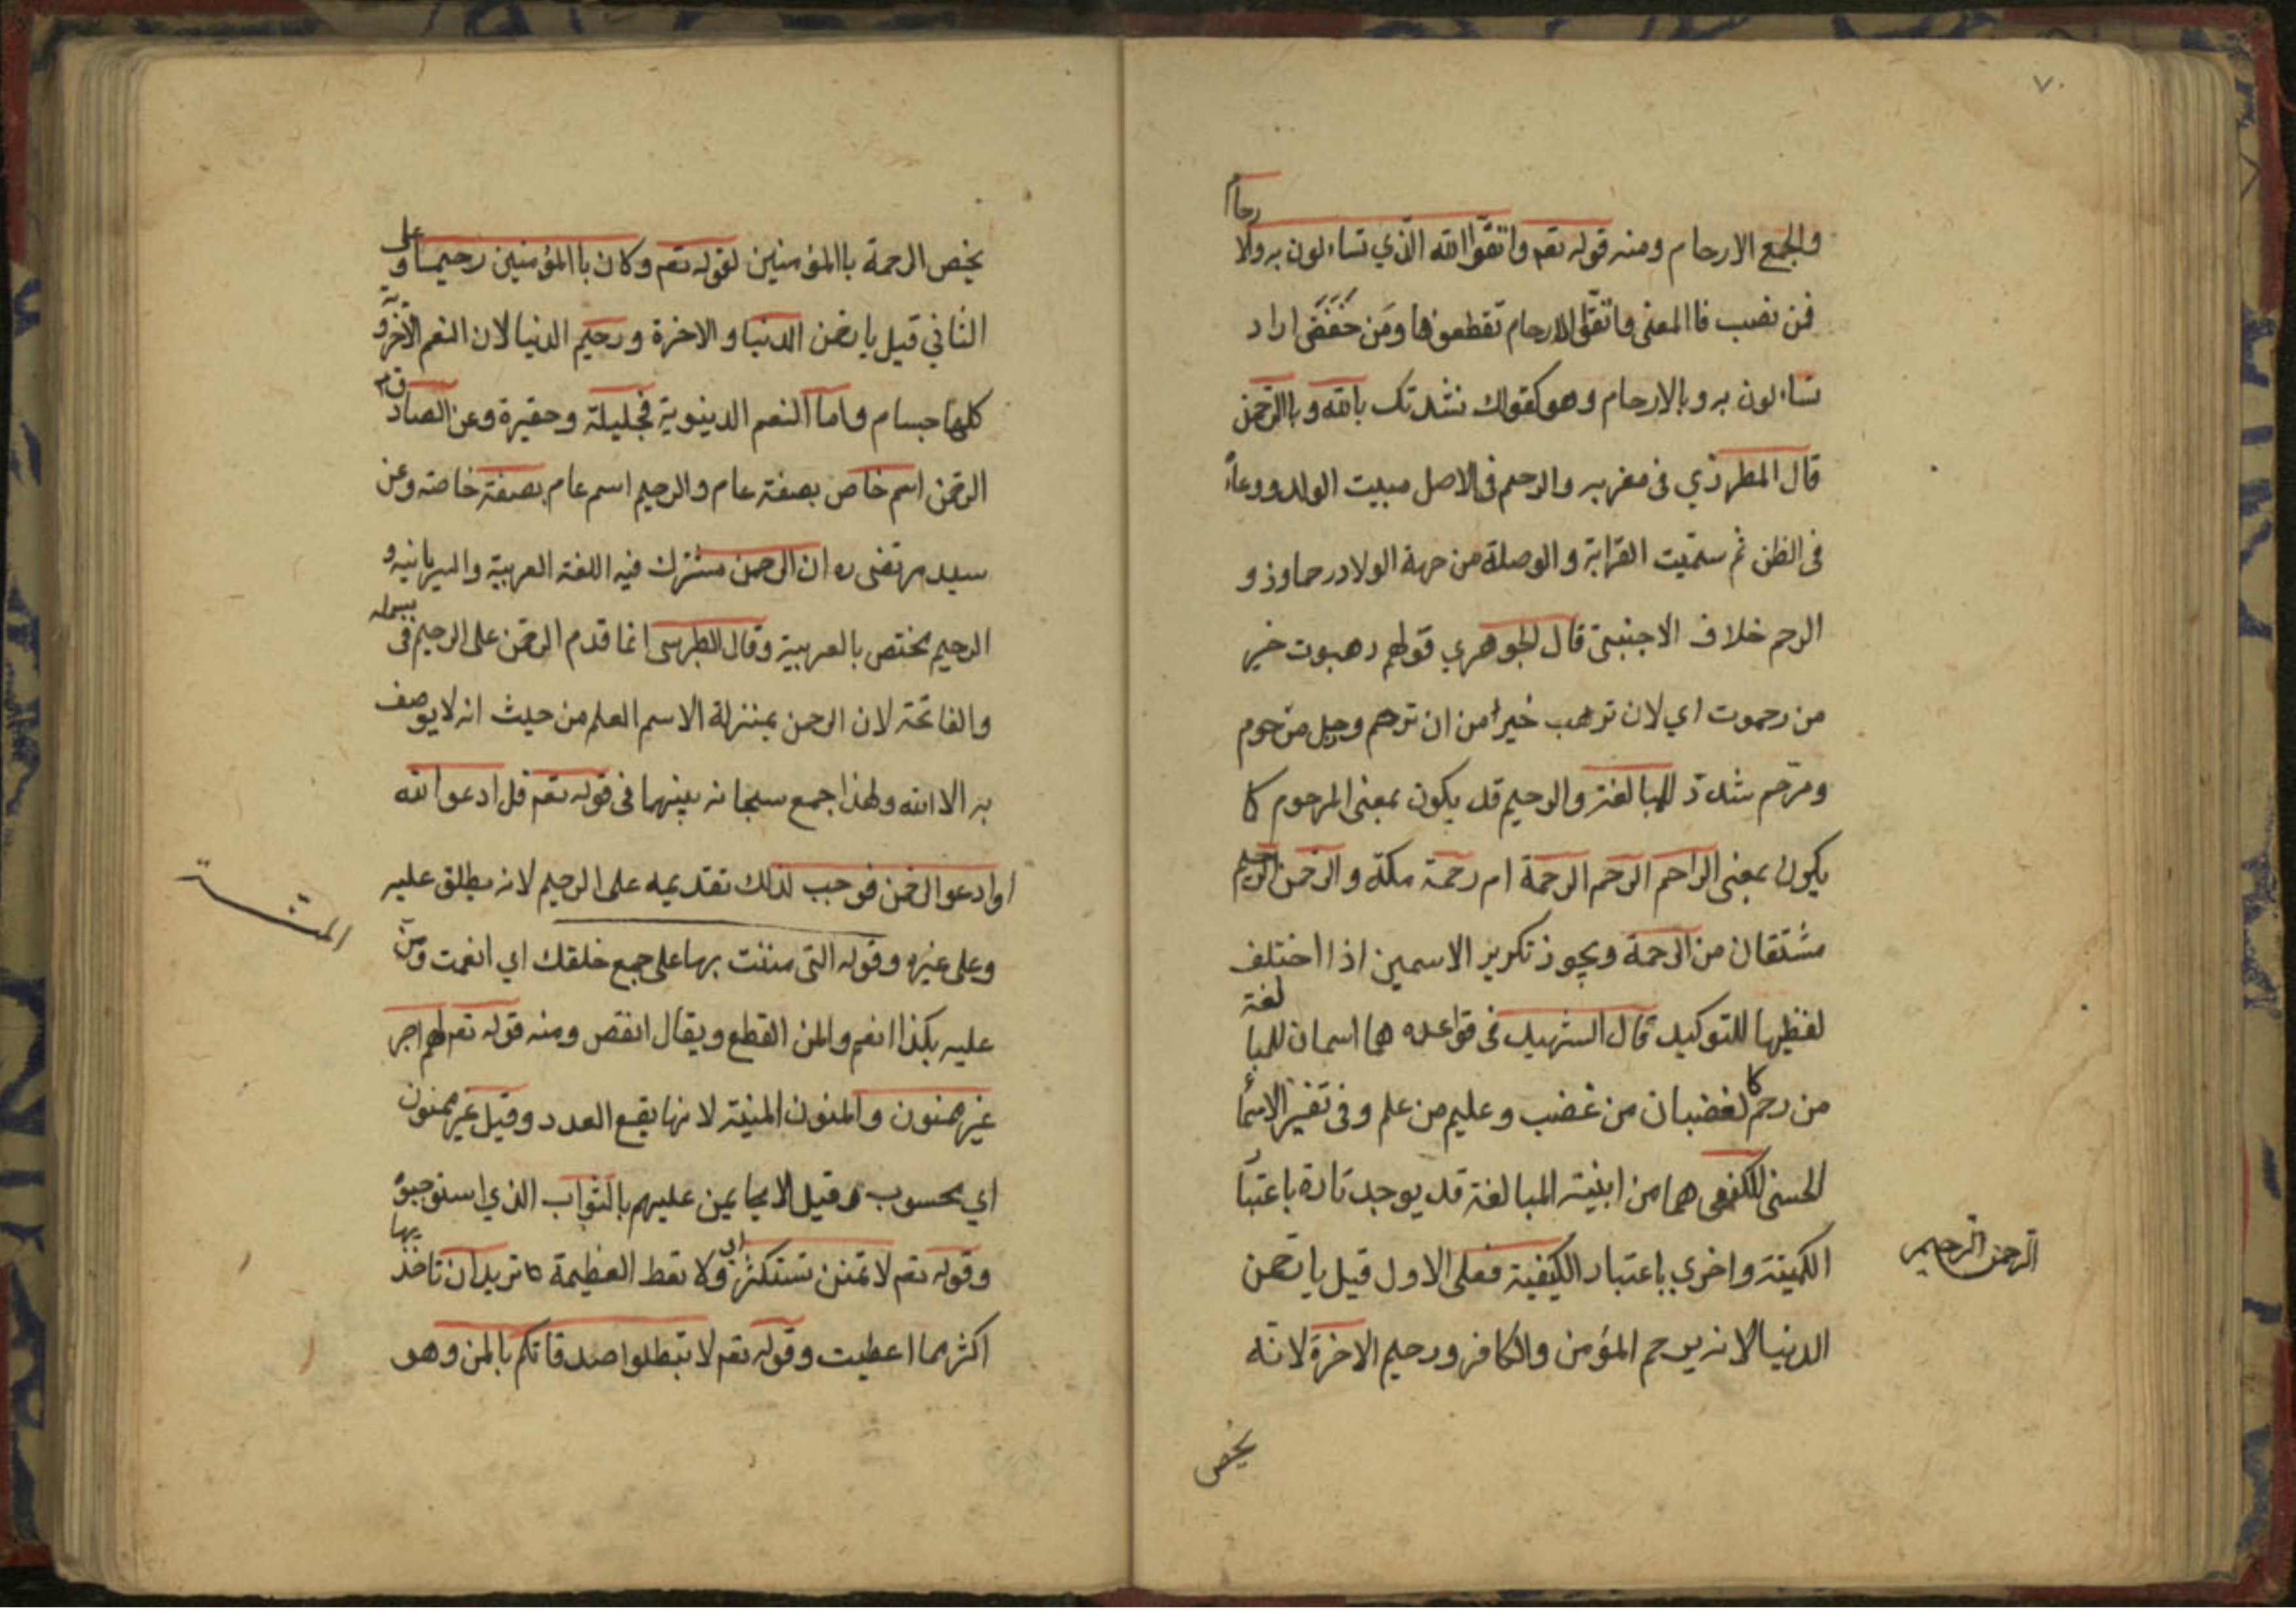 ٧٠
والجمع الارحام ومنه قوله تعم واتقوا الله الذي تساءلون به والارحام
فمن نصب فاالمعنى واتقوا الارحام تقطعوها ومن خفض اراد
تساءلون به وبالارحام وهو كقولك نشدتك بالله وباالرحمن
قال المطرزي فى مغربه والرحم فى الاصل مبيت الولد ووعاءه
فى البطن ثم سمّيت القرابة والوصلة من جهة الولاد رحما وذو
الرحم خلاف الاجنبىّ قال الجوهري قولهم رهبوت خير
من رحموت اي لان ترهب خيرا من ان ترحم ورجل مرحوم
ومرّحم شدّد للمبالغة والرحيم قد يكون بمعنى المرحوم كا
يكون بمعنى الراحم الرحم الرحمة ام رحمة مكّة والرحمن الرحيم
مشتقان من الرحمة ويجوز تكرير الاسمين اذا اختلف
لفظيها للتوكيد قال الشهيد فى قواعده هما اسمان للمبالغة
من رحم كا لغضبان من غضب وعليم من علم وفى تفسير الاسماء
الحسنى للكفعمى هما من ابنية المبالغة قد يوجد تارة باعتبار
الكميّة واخري باعتبار الكيفية فعلى الاول قيل يا رحمن
الدنيا لانه يرحم المؤمن والكافر ورحيم الاخرة لانّه
الرحمن الرحيم
يخص
يخص الرحمة باالمؤمنين لقوله تعم وكان باالمؤمنين رحيما وعلى
الثاني قيل يا رحمن الدنيا والاخرة ورحيم الدنيا لان النعم الاخروية
كلها جسام واما النعم الدينوية فجليلة وحقيرة وعن الصادق
الرحمن اسم خاص بصفة عام والرحيم اسم عام بصفة خاصه وعن
سيد مرتضى ره ان الرحمن مشترك فيه اللغة العربية والسريانيه و
الرحيم مختص بالعربية وقال الطبرسى انما قدم الرحمن على الرحيم فى بسمله
والفاتحة لان الرحمن بمنزلة الاسم العلم من حيث انه لا يوصف
به الا الله ولهذا جمع سبحانه بينهما فى قوله تعم قل ادعوا الله
او ادعوا الرحمن فوجب لذلك تقديمه على الرحيم لانه يطلق عليه
وعلى غيره وقوله التى مننت بها على جمع خلقك اي انعمت ومنّ
عليه بكذا انعم والمن القطع ويقال النقص ومنه قوله تعم لهم اجر
غير ممنون والمنون المنية لانها يقطع العدد وقيل غير ممنون
اي محسوب وقيل لا يمن عليهم بالثواب الذي استوجبوه
وقوله تعم لا تمنن تستكثر اي ولا تعط العظيمة تريد ان تاخذ بها
اكثر مما اعطيت وقوله تعم لا تبطلوا صدقاتكم بالمن وهو